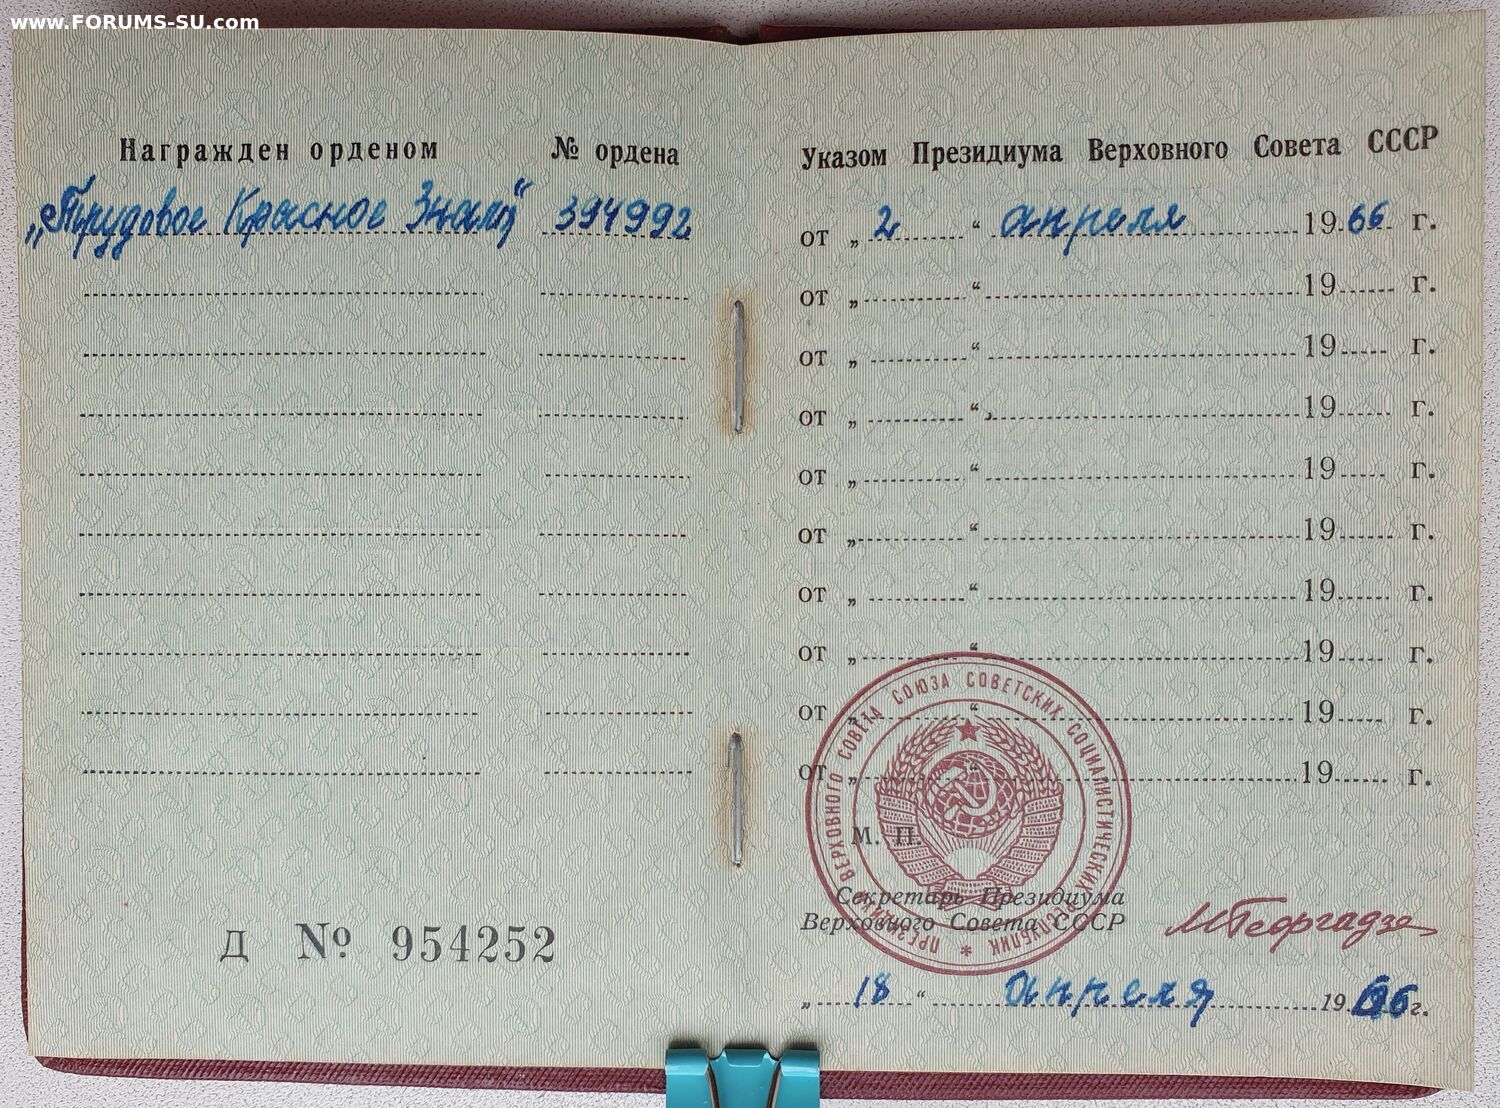 www.FORUMS-SU.com
Награжден орденом № ордена
„Трудовое Красное Знамя“ 394992
Указом Президиума Верховного Совета СССР
от „ 2 “ апреля 1966 г.
от „ “ 19 г.
от „ “ 19 г.
от „ “ 19 г.
от „ “ 19 г.
от „ “ 19 г.
от „ “ 19 г.
от „ “ 19 г.
от „ “ 19 г.
от „ “ 19 г.
М. П.
ПРЕЗИДИУМ ВЕРХОВНОГО СОВЕТА СОЮЗА СОВЕТСКИХ СОЦИАЛИСТИЧЕСКИХ РЕСПУБЛИК
Секретарь Президиума
Верховного Совета СССР
МГеоргадзе
„ 18 “ апреля 1966 г.
Д № 954252